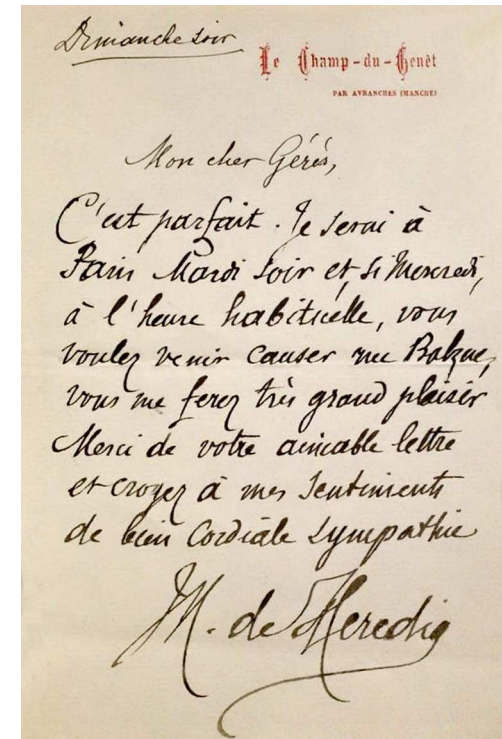 Dimanche soir
Le Champ-du-Genêt
PAR AVRANCHES (MANCHE)
Mon cher Gérés,
C'est parfait. Je serai à
Paris Mardi soir et, si Mercredi,
à l'heure habituelle, vous
voulez venir causer rue Balzac,
vous me ferez très grand plaisir
Merci de votre aimable lettre
et croyez à mes sentiments
de bien cordiale sympathie
M. de Heredia